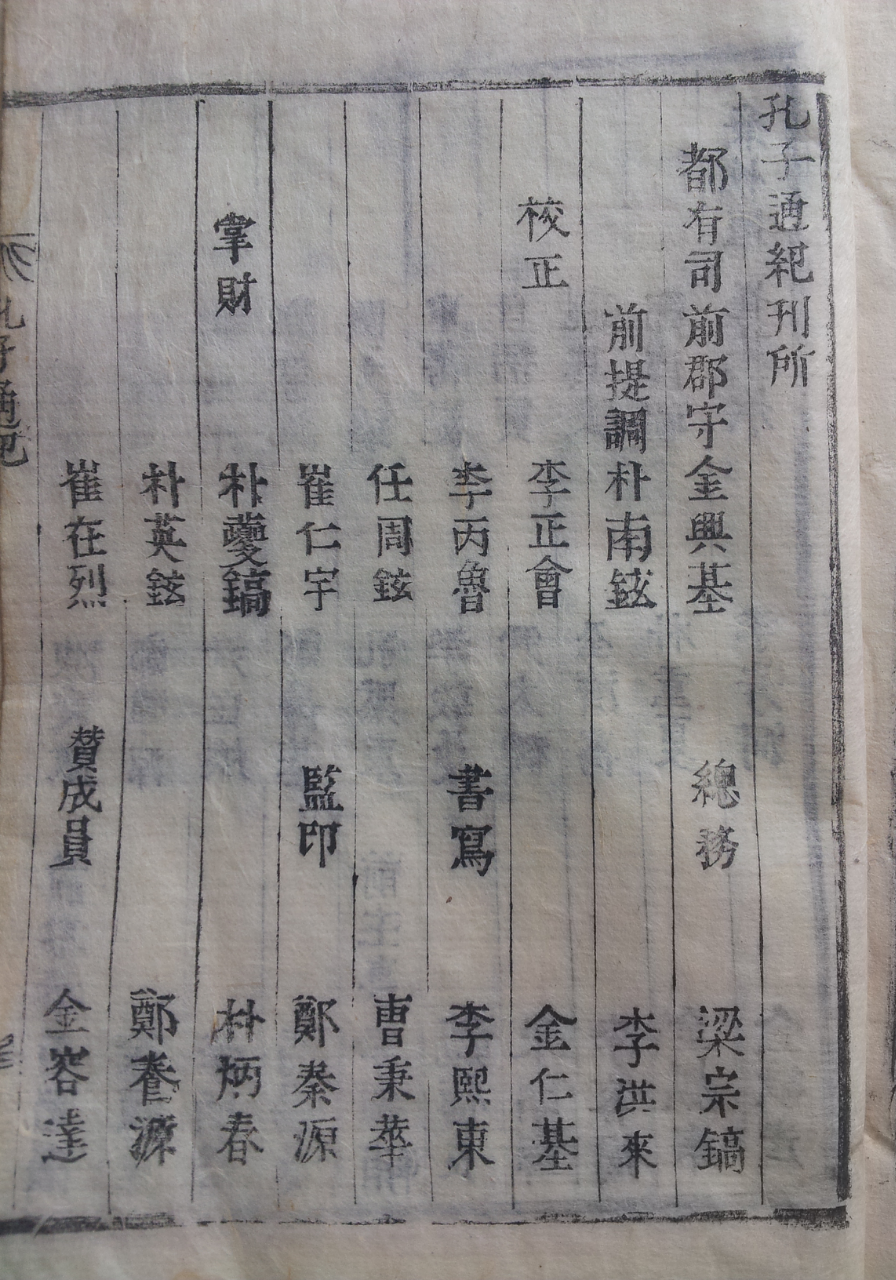 孔子通紀刊所
都有司前郡守金興基 總務 梁宗鎬
前提調朴南鉉 李洪來
校正 李正會 金仁基
李丙魯 書寫 李熙東
任周鉉 曹秉華
崔仁宇 監印 鄭秦源
掌財 朴夔鎬 朴炳春
朴英鉉 鄭養源
崔在烈 賛成員 金容達
孔子通紀